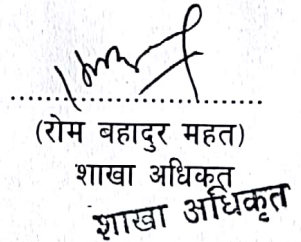 (रोम बहादुर महत)
शाखा अधिकृत
शाखा अधिकृत